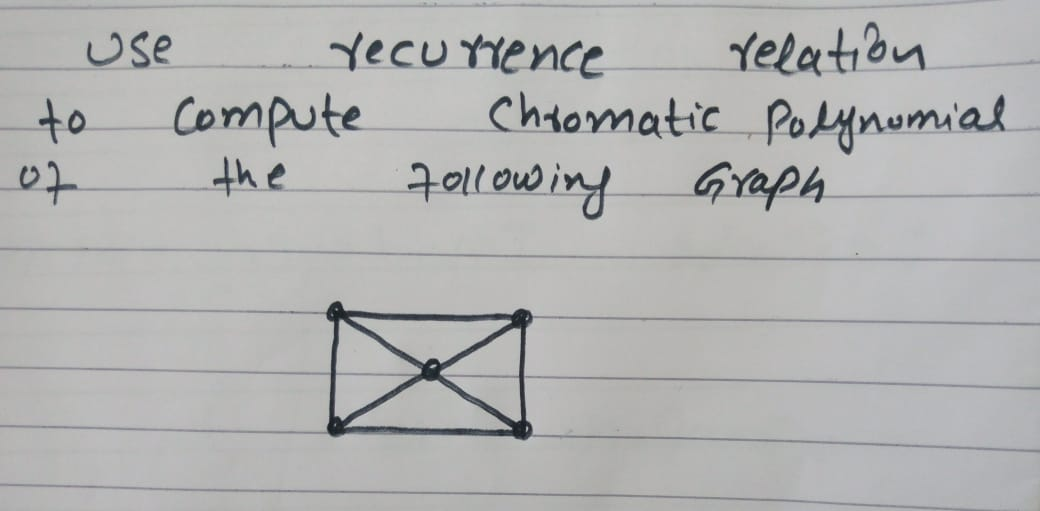 Use recurrence relation
to Compute Chromatic Polynomial
of the following Graph